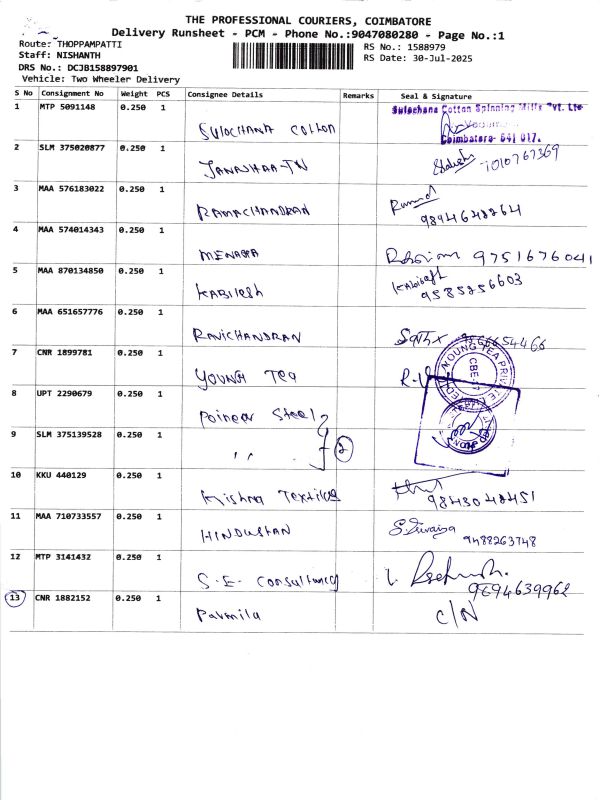 THE PROFESSIONAL COURIERS, COIMBATORE
Delivery Runsheet - PCM - Phone No.:9047080280 - Page No.:1
Route: THOPPAMPATTI
RS No.: 1588979
Staff: NISHANTH
RS Date: 30-Jul-2025
DRS No.: DCJB158897901
Vehicle: Two Wheeler Delivery
S No Consignment No Weight PCS Consignee Details Remarks Seal & Signature
1 MTP 5091148 0.250 1 SULOCHANA COTTON
Sulochana Cotton Spinning Mills Pvt. Ltd
Coimbatore- 641 017.
2 SLM 375020877 0.250 1 JANASHAA-TN 7010767369
3 MAA 576183022 0.250 1 RAMACHANDRAN 9894648264
4 MAA 574014343 0.250 1 MENAGA 9751676041
5 MAA 870134850 0.250 1 KABILESH 9585256603
6 MAA 651657776 0.250 1 RAVICHANDRAN
7 CNR 1899781 0.250 1 YOUNG TEA R.V
YOUNG TEA
CBE-17
8 UPT 2290679 0.250 1 Poineer Steel
9 SLM 375139528 0.250 1 " " 2
10 KKU 440129 0.250 1 Krishna Textiles 9843048451
11 MAA 710733557 0.250 1 HINDUSTAN 9488263748
12 MTP 3141432 0.250 1 S.E- Consultancy 9694639962
13 CNR 1882152 0.250 1 Parmila C/N